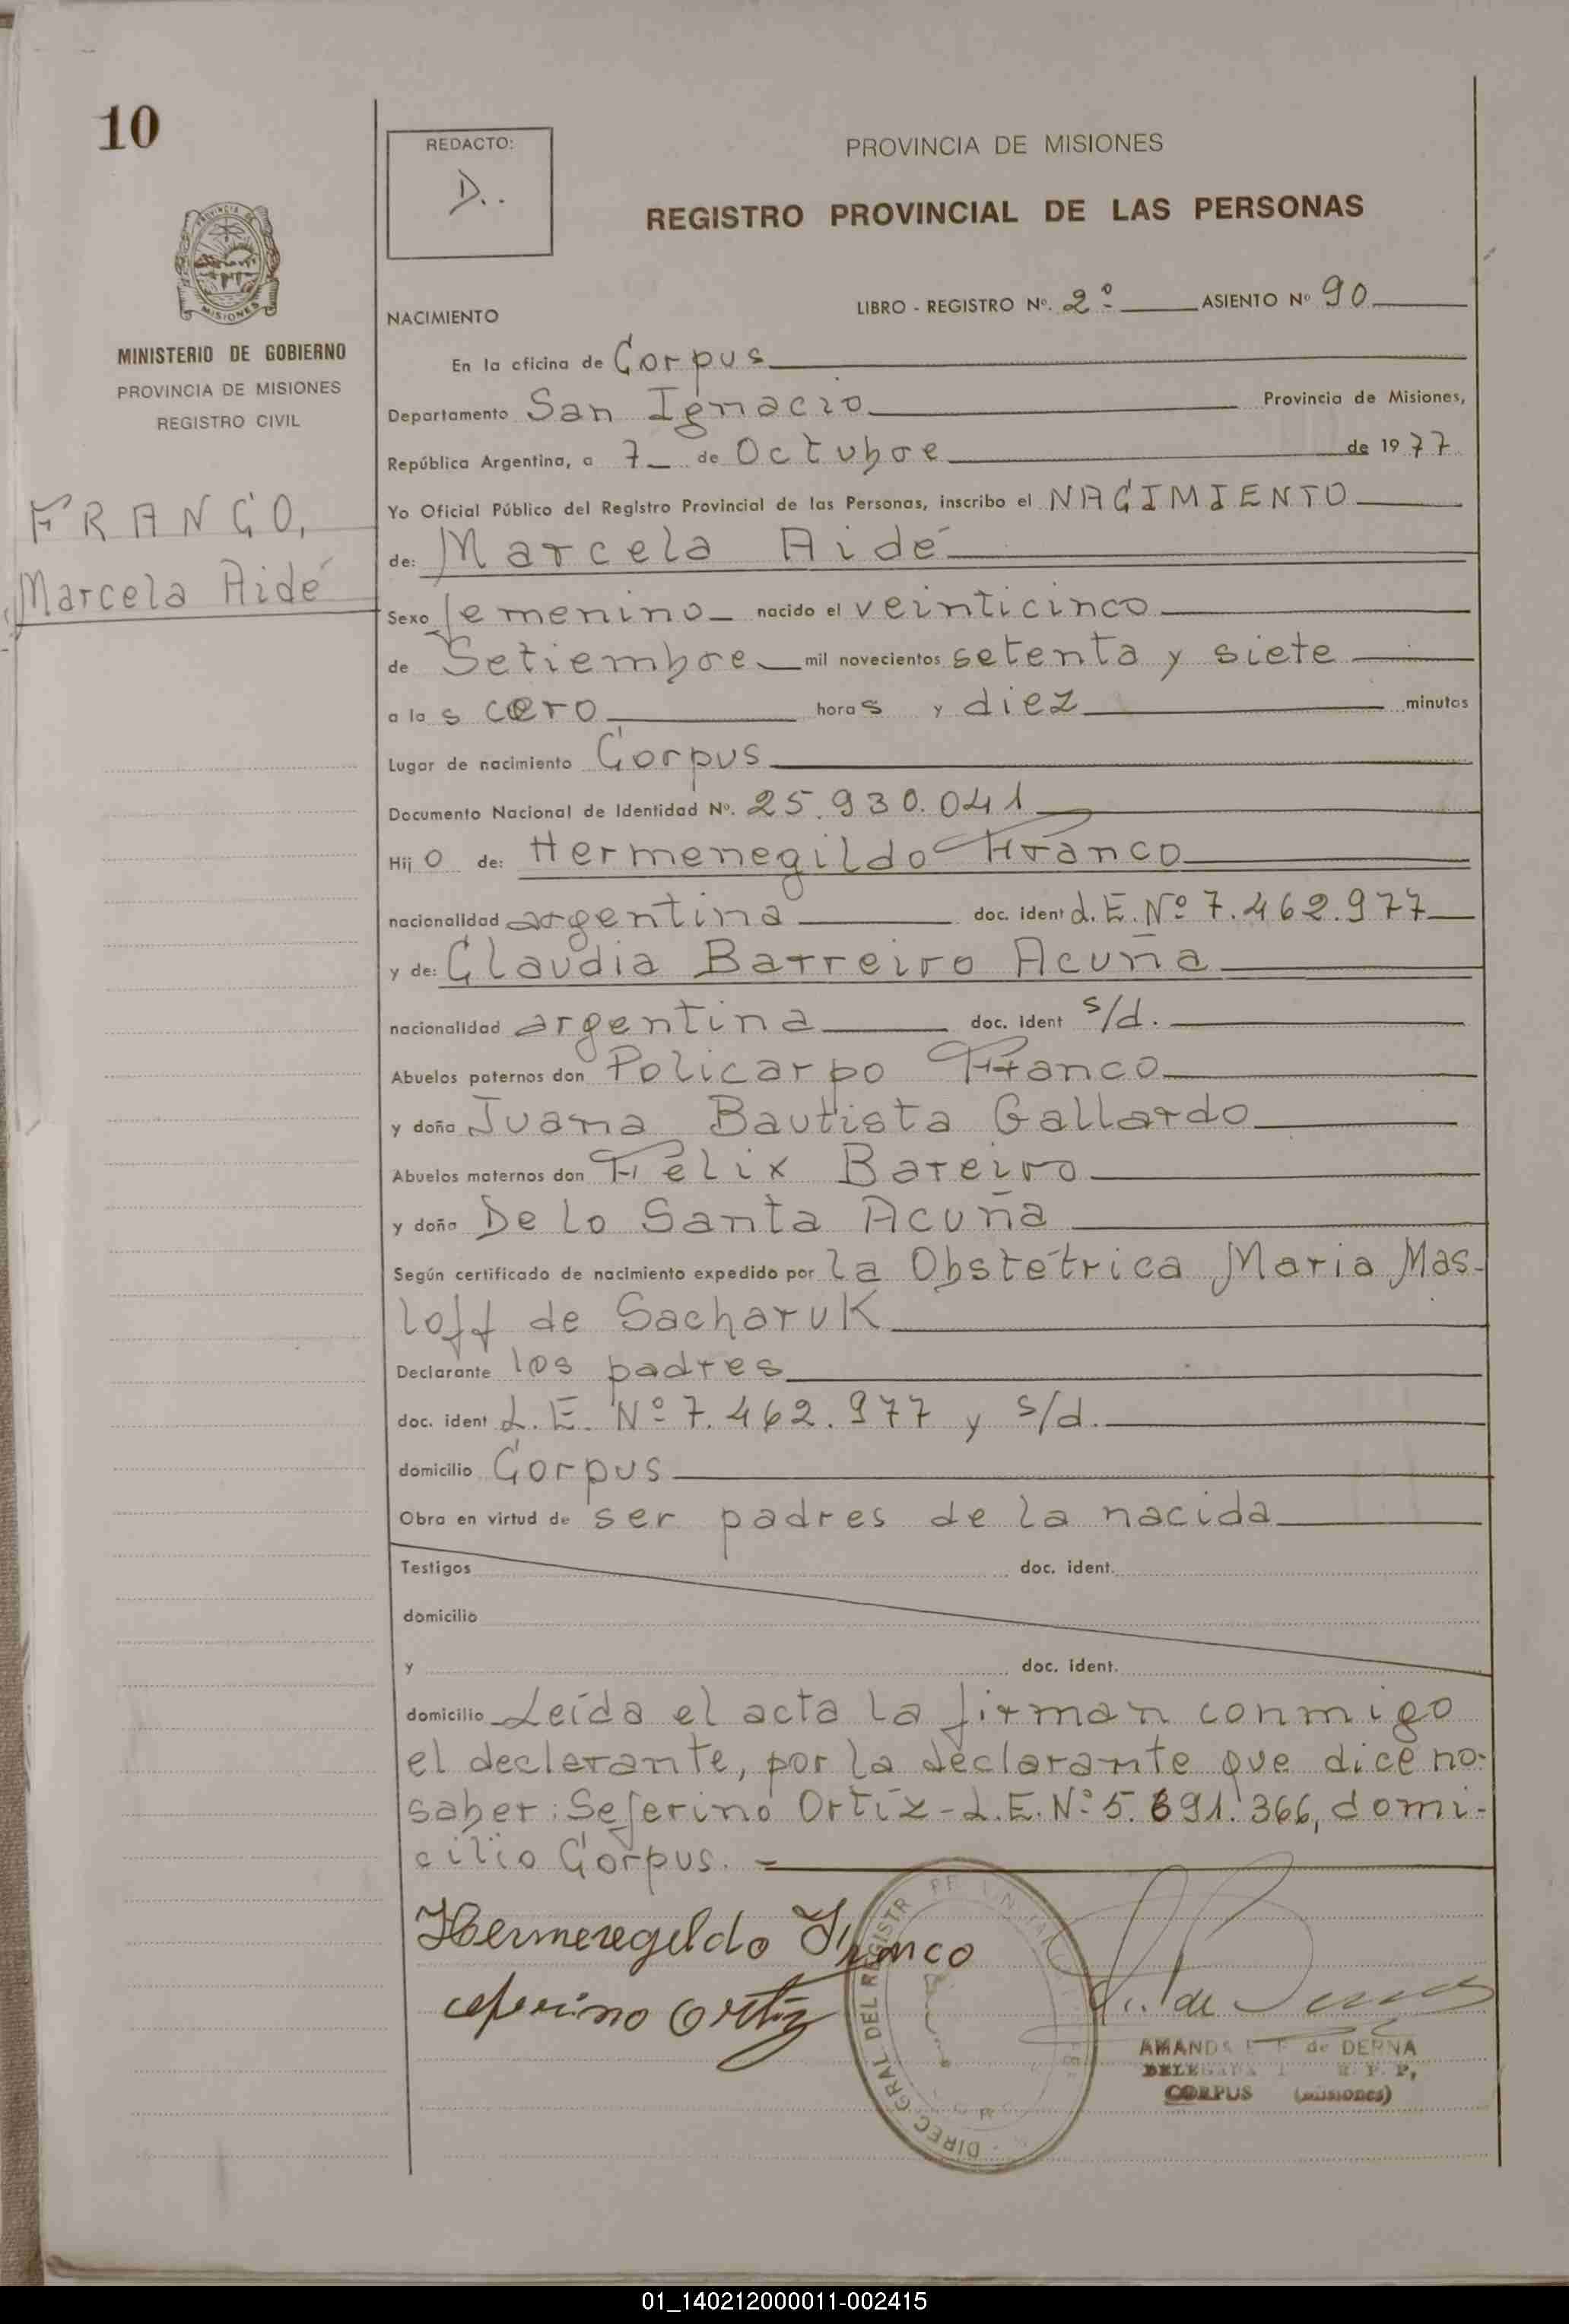 10
REDACTO:
D..
PROVINCIA DE MISIONES
REGISTRO PROVINCIAL DE LAS PERSONAS
PROVINCIA DE
MISIONES
MINISTERIO DE GOBIERNO
PROVINCIA DE MISIONES
REGISTRO CIVIL
FRANCO,
Marcela Aidé
LIBRO - REGISTRO Nº. 2º ASIENTO Nº 90
NACIMIENTO
En la oficina de Corpus
Departamento San Ignacio Provincia de Misiones,
República Argentina, a 7 de Octubre de 1977
Yo Oficial Público del Registro Provincial de las Personas, inscribo el NACIMIENTO
de: Marcela Aidé
Sexo femenino nacido el veinticinco
de Setiembre mil novecientos setenta y siete
a las cero horas y diez minutos
Lugar de nacimiento Corpus
Documento Nacional de Identidad Nº. 25.930.041
Hijo de: Hermenegildo Franco
nacionalidad argentina doc. ident L.E. Nº 7.462.977
y de: Claudia Barreiro Acuña
nacionalidad argentina doc. ident s/d.
Abuelos paternos don Policarpo Franco
y doña Juana Bautista Gallardo
Abuelos maternos don Félix Bareiro
y doña De lo Santa Acuña
Según certificado de nacimiento expedido por la Obstétrica Maria Mas-
loff de Sacharuk
Declarante los padres
doc. ident L.E. Nº 7.462.977 y s/d.
domicilio Corpus
Obra en virtud de ser padres de la nacida
Testigos doc. ident.
domicilio
y doc. ident.
domicilio Leída el acta la firman conmigo
el declarante, por la declarante que dice no
saber: Seferino Ortíz - L.E. Nº 5.691.366, domi-
cilio Corpus. -
Hermenegildo Franco
Seferino Ortiz
DIREC GRAL DEL REGISTR
AMANDA de DERNA
DELEGADA R. P. P.
CORPUS (Misiones)
01_140212000011-002415